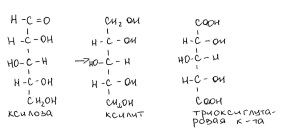 H - C = O
H - C - OH
HO - C - H
H - C - OH
CH₂OH
ксилоза
CH₂ OH
H - C - OH
→ HO - C - H
H - C - OH
CH₂OH
ксилит
COOH
H - C - OH
HO - C - H
H - C - OH
COOH
триоксиглута-
ровая к-та